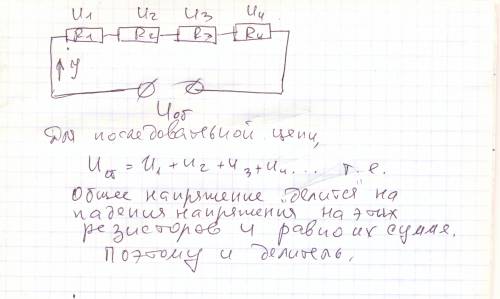 U1 U2 U3 U4
R1 R2 R3 R4
У
Uоб
Для последовательной цепи,
Uоб = U1 + U2 + U3 + U4 .... т.е.
Общее напряжение "делится" на
падения напряжения на этих
резисторов и равно их сумме.
Поэтому и делитель.